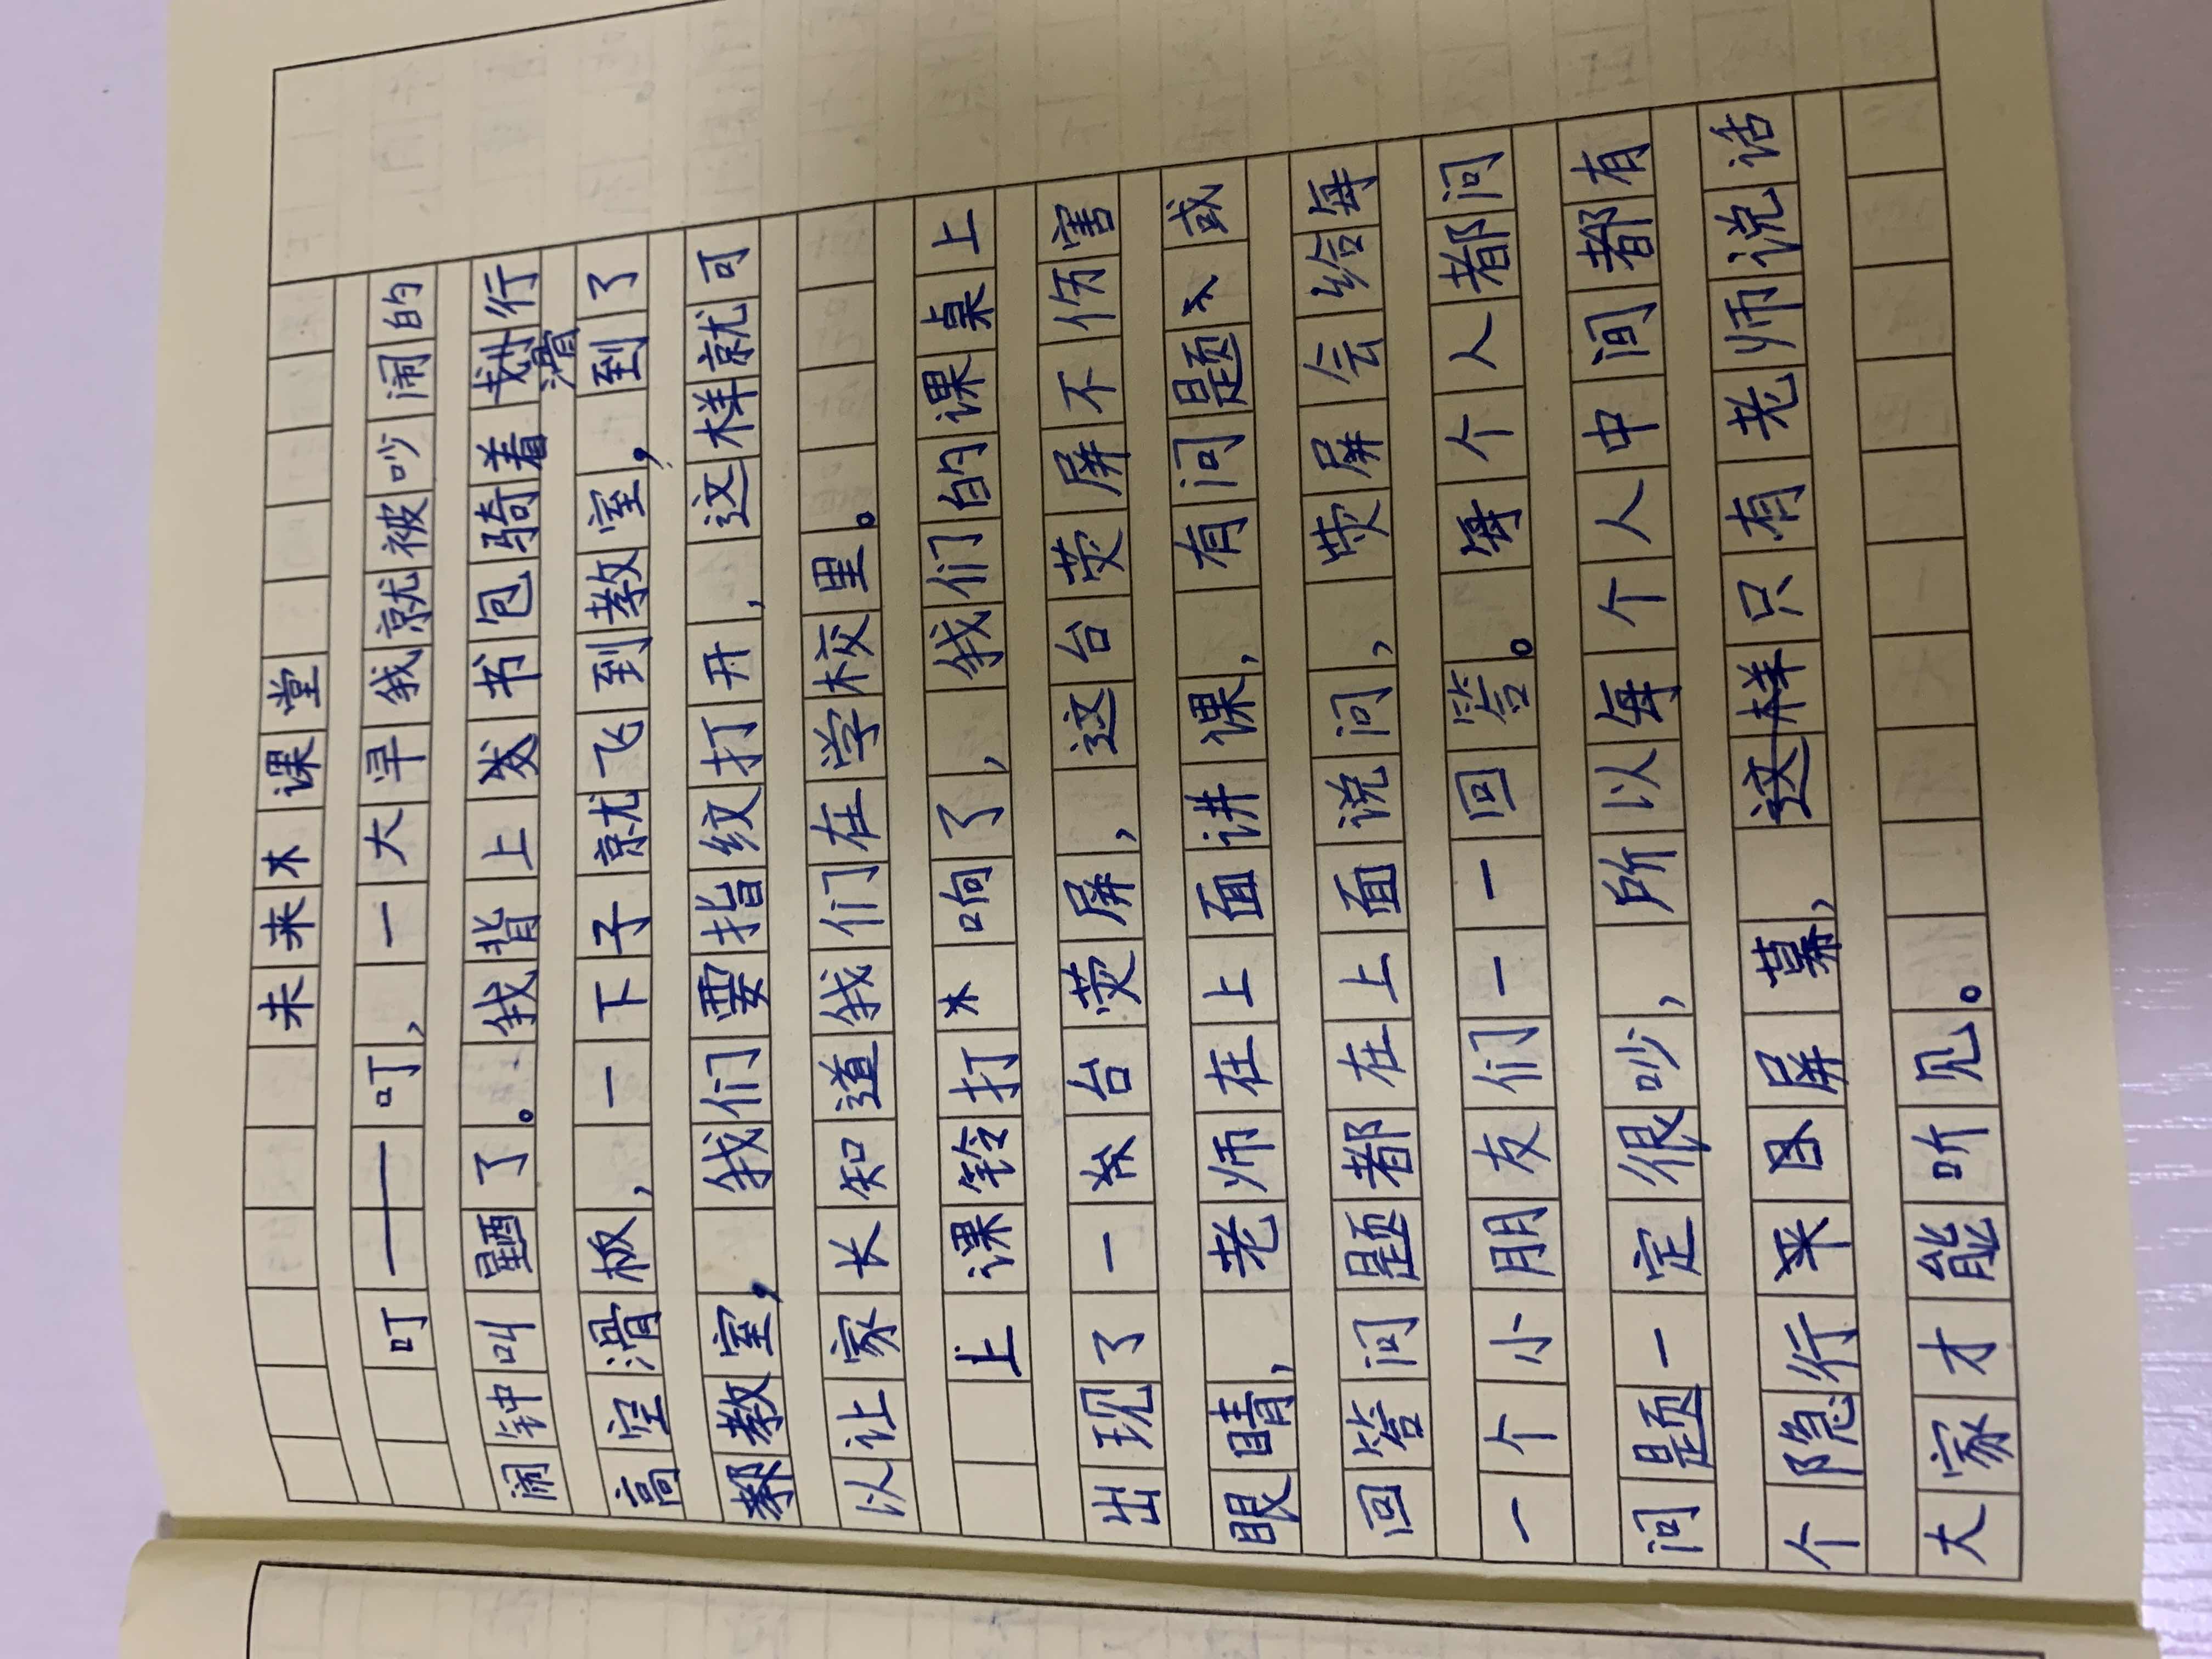 未来课堂
叮——叮，一大早我就被吵闹的
闹钟叫醒了。我背上书包骑着滑行
高空滑板，一下子就飞到教室，到了
教室，我们要指纹打开，这样就可
以让家长知道我们在学校里。
上课铃打响了，我们的课桌上
出现了一台荧屏，这台荧屏不伤害
眼睛，老师在上面讲课，有问题或
回答问题都在上面说问，荧屏会给每
一个小朋友们一一回答。每个人都问
问题一定很吵，所以每个人中间都有
个隐行屏幕，只有老师说话
大家才能听见。